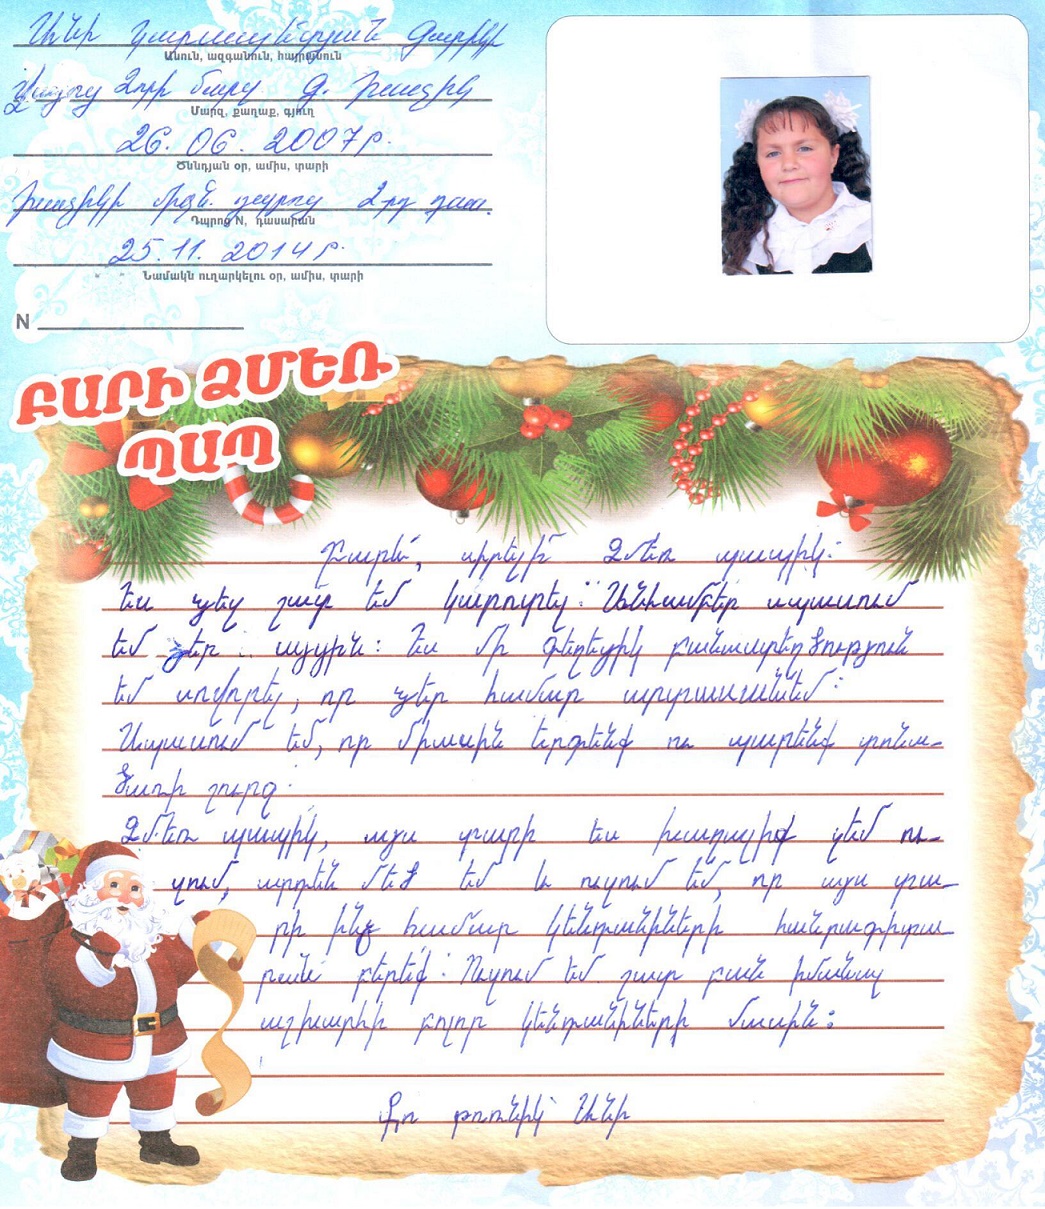 Անի Կարապետյան Գարիկի
Անուն, ազգանուն, հայրանուն
Վայոց Ձորի մարզ գ. Խաչիկ
Մարզ, քաղաք, գյուղ
26. 06. 2007թ.
Ծննդյան օր, ամիս, տարի
Խաչիկի միջն. դպրոց 2-րդ դաս.
Դպրոց N, դասարան
25.11. 2014թ.
Նամակն ուղարկելու օր, ամիս, տարի
N
ԲԱՐԻ ՁՄԵՌ
ՊԱՊ
Բարև՛, սիրելի՛ Ձմեռ պապիկ:
Ես ձեզ շատ եմ կարոտել: Անհամբեր սպասում
եմ ձեր այցին: Ես մի գեղեցիկ բանաստեղծություն
եմ սովորել, որ ձեր համար արտասանեմ:
Սպասում եմ, որ միասին երգենք ու պարենք տոնա-
ծառի շուրջ:
Ձմեռ պապիկ, այս տարի ես խաղալիք չեմ ու-
զում, արդեն մեծ եմ և ուզում եմ, որ այս տա-
րի ինձ համար կենդանիների հանրագիտա-
րան բերեք: Ուզում եմ շատ բան իմանալ
աշխարհի բոլոր կենդանիների մասին:
Քո թոռնիկ՝ Անի